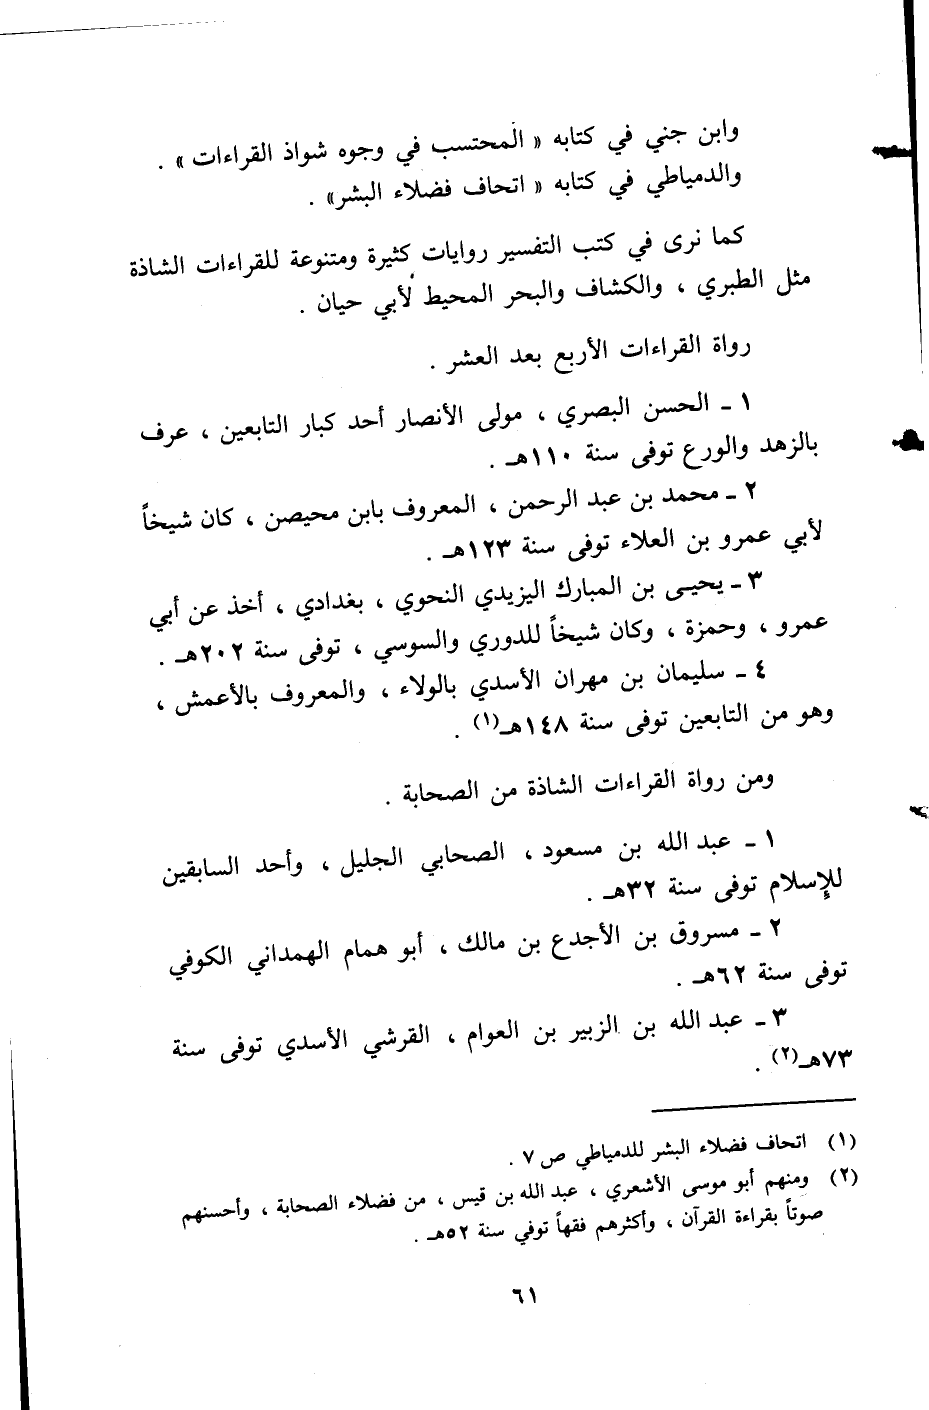 وابن جني في كتابه « المحتسب في وجوه شواذ القراءات » .
والدمياطي في كتابه « اتحاف فضلاء البشر» .
كما نرى في كتب التفسير روايات كثيرة ومتنوعة للقراءات الشاذة
مثل الطبري ، والكشاف والبحر المحيط لأبي حيان .
رواة القراءات الأربع بعد العشر .
١ ـ الحسن البصري ، مولى الأنصار أحد كبار التابعين ، عرف
بالزهد والورع توفى سنة ١١٠هـ .
٢ ـ محمد بن عبد الرحمن ، المعروف بابن محيصن ، كان شيخاً
لأبي عمرو بن العلاء توفى سنة ١٢٣هـ .
٣ ـ يحيى بن المبارك اليزيدي النحوي ، بغدادي ، أخذ عن أبي
عمرو ، وحمزة ، وكان شيخاً للدوري والسوسي ، توفى سنة ٢٠٢هـ .
٤ ـ سليمان بن مهران الأسدي بالولاء ، والمعروف بالأعمش ،
وهو من التابعين توفى سنة ١٤٨هـ(١) .
ومن رواة القراءات الشاذة من الصحابة .
١ ـ عبد الله بن مسعود ، الصحابي الجليل ، وأحد السابقين
للإسلام توفى سنة ٣٢هـ .
٢ ـ مسروق بن الأجدع بن مالك ، أبو همام الهمداني الكوفي
توفى سنة ٦٢هـ .
٣ ـ عبد الله بن الزبير بن العوام ، القرشي الأسدي توفى سنة
٧٣هـ(٢) .
(١) اتحاف فضلاء البشر للدمياطي ص ٧ .
(٢) ومنهم أبو موسى الأشعري ، عبد الله بن قيس ، من فضلاء الصحابة ، وأحسنهم
صوتاً بقراءة القرآن ، وأكثرهم فقهاً توفي سنة ٥٢هـ .
٦١